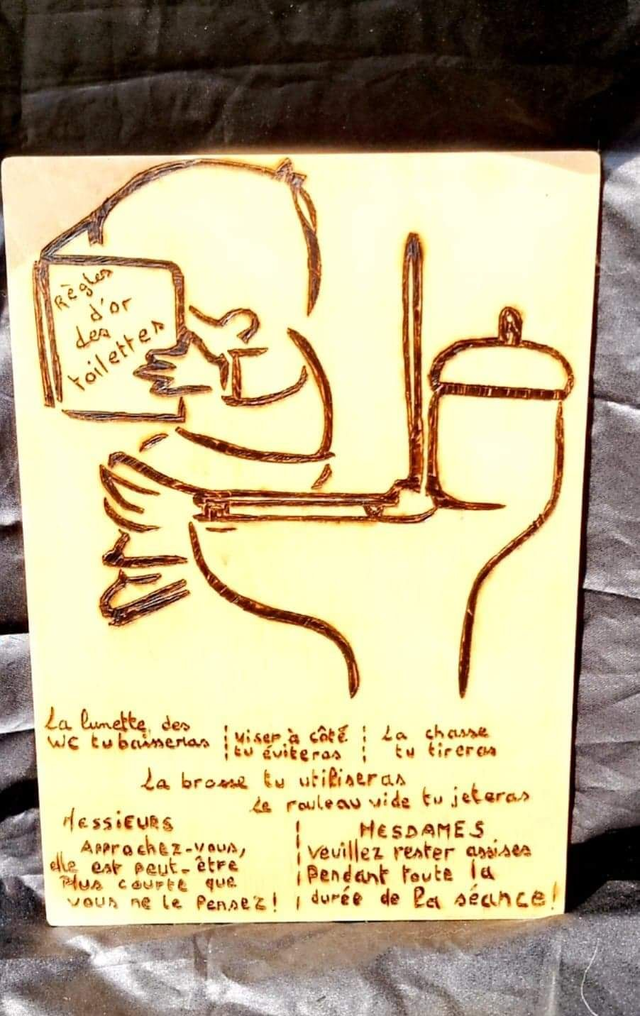 Règles
d'or
des
toilettes
La lunette des
WC tu baisseras
Viser à côté
tu éviteras
La chasse
tu tireras
La brosse tu utiliseras
Le rouleau vide tu jeteras
MESSIEURS
Approchez-vous,
elle est peut-être
Plus courte que
vous ne le Pensez!
MESDAMES
Veuillez rester assises
Pendant toute la
durée de la séance!